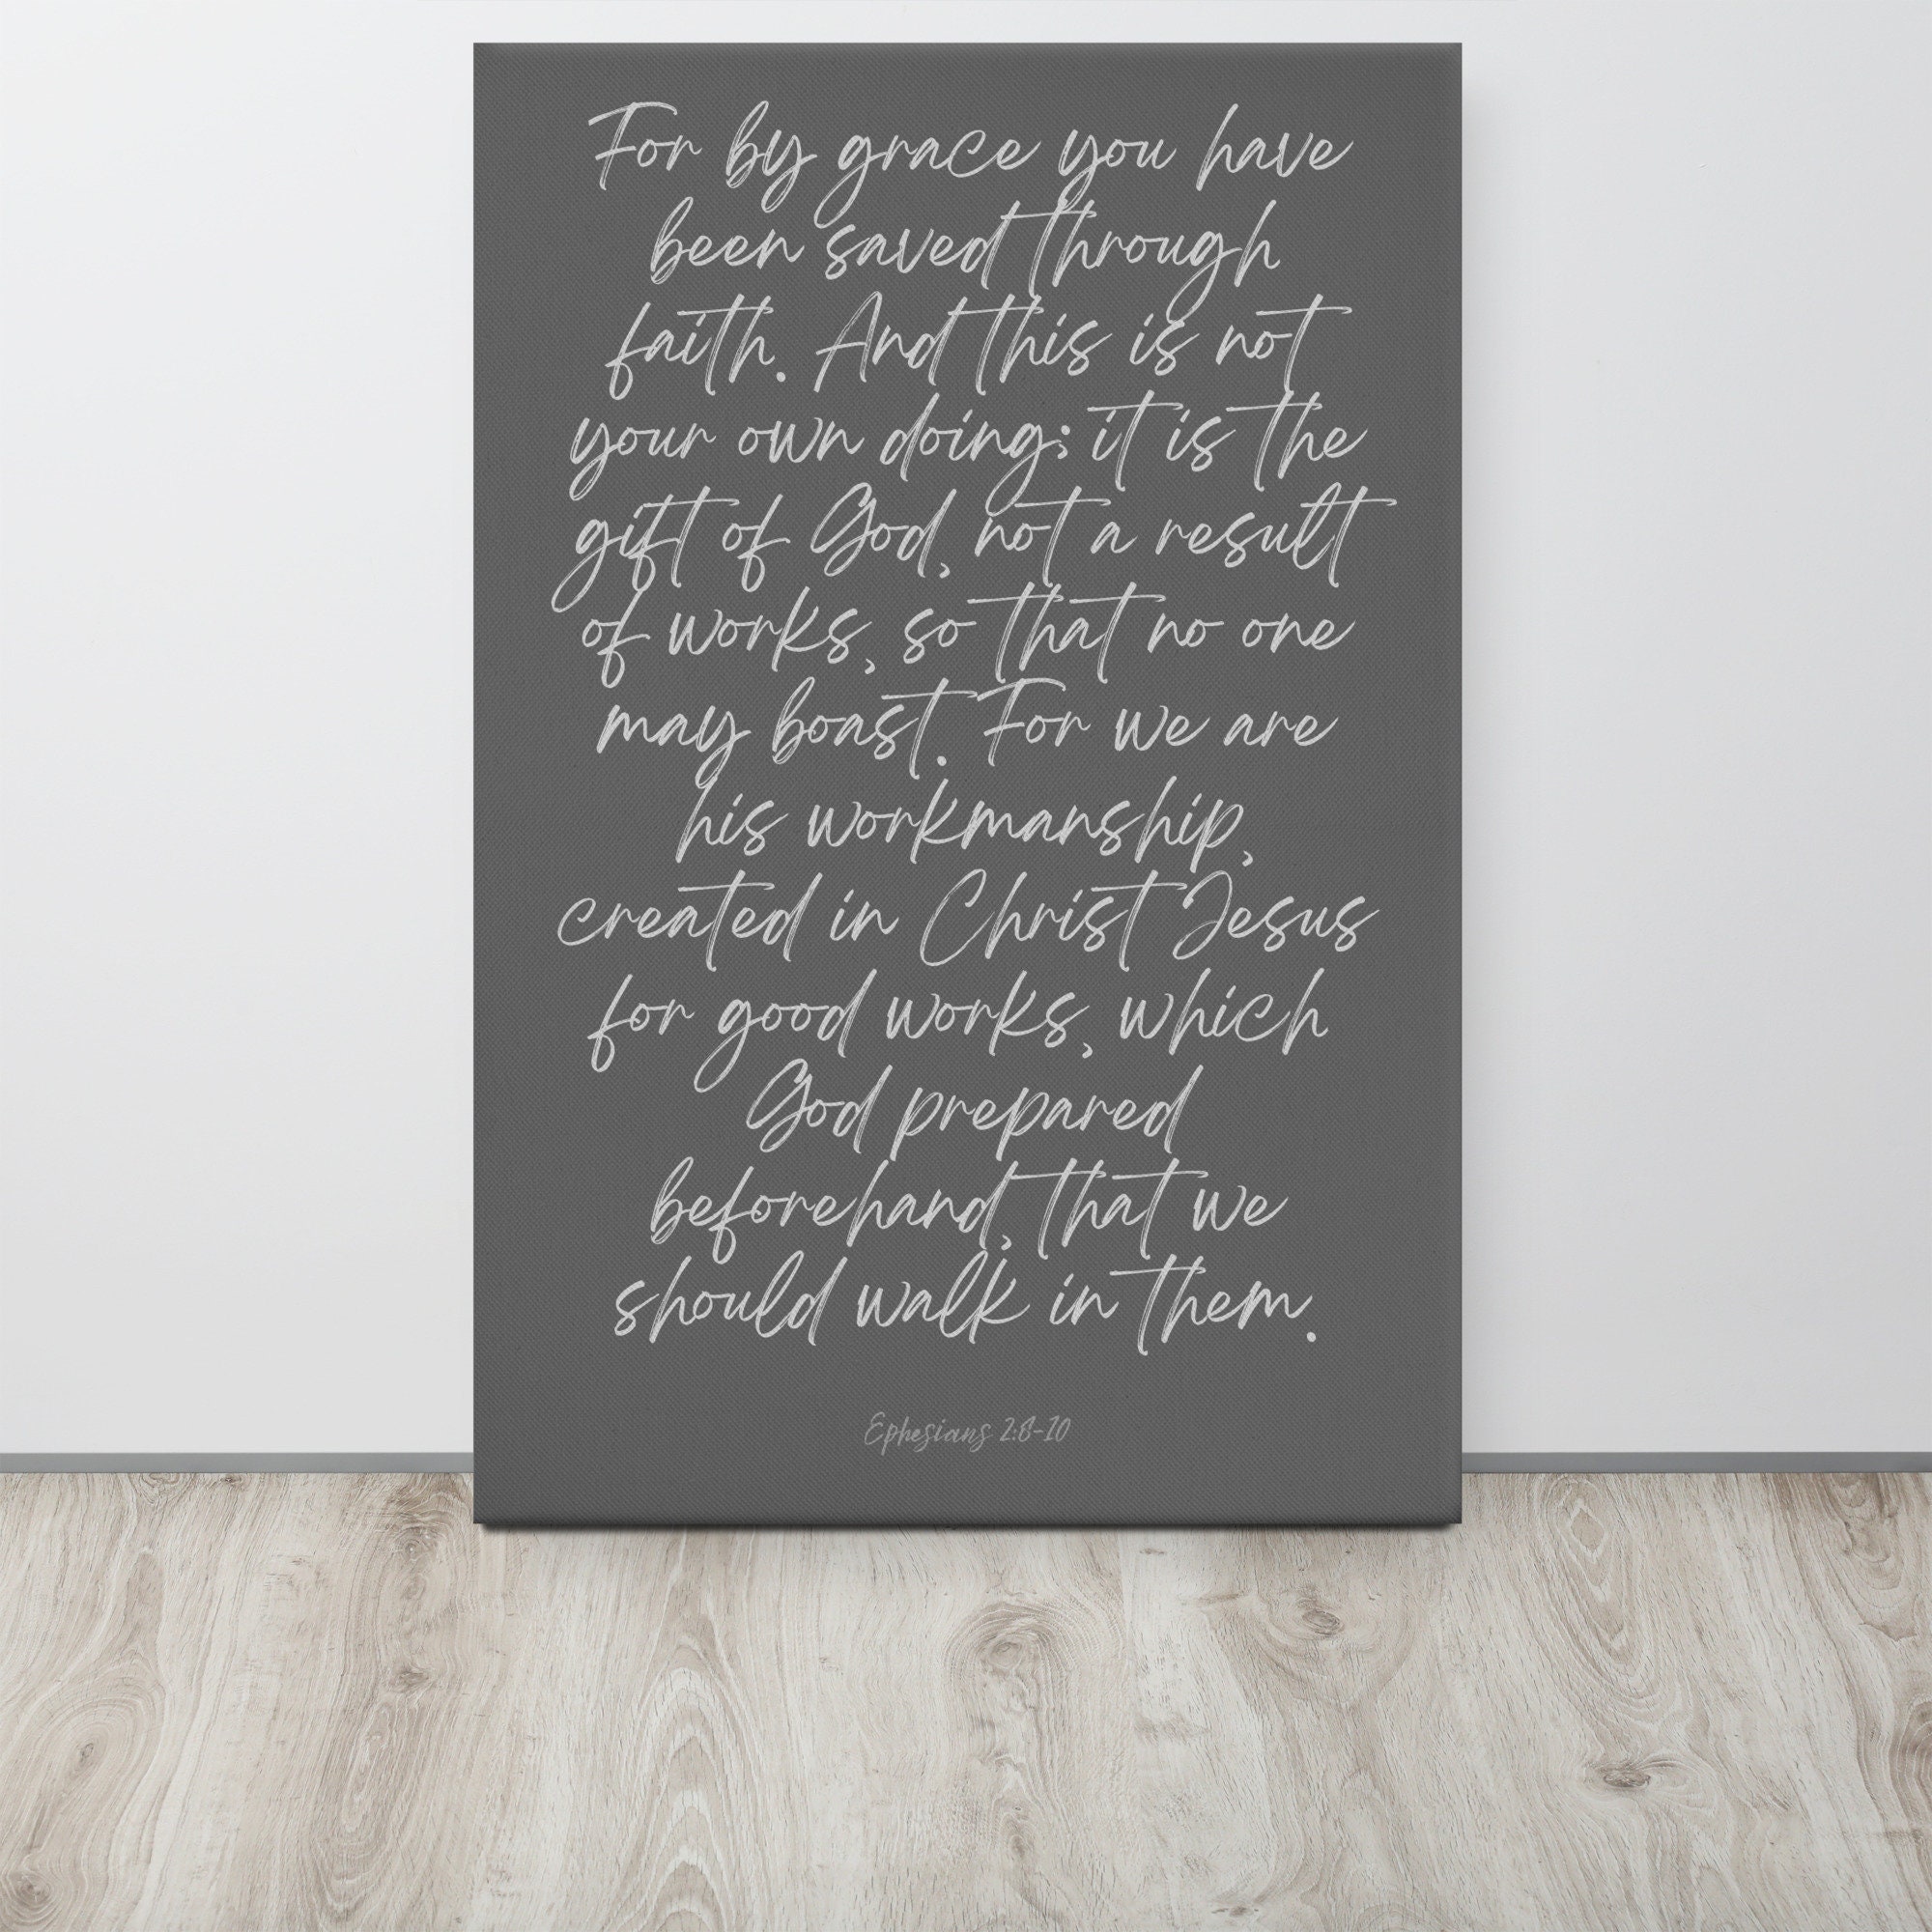 For by grace you have
been saved through
faith. And this is not
your own doing; it is the
gift of God, not a result
of works, so that no one
may boast. For we are
his workmanship,
created in Christ Jesus
for good works, which
God prepared
beforehand, that we
should walk in them.
Ephesians 2:8-10